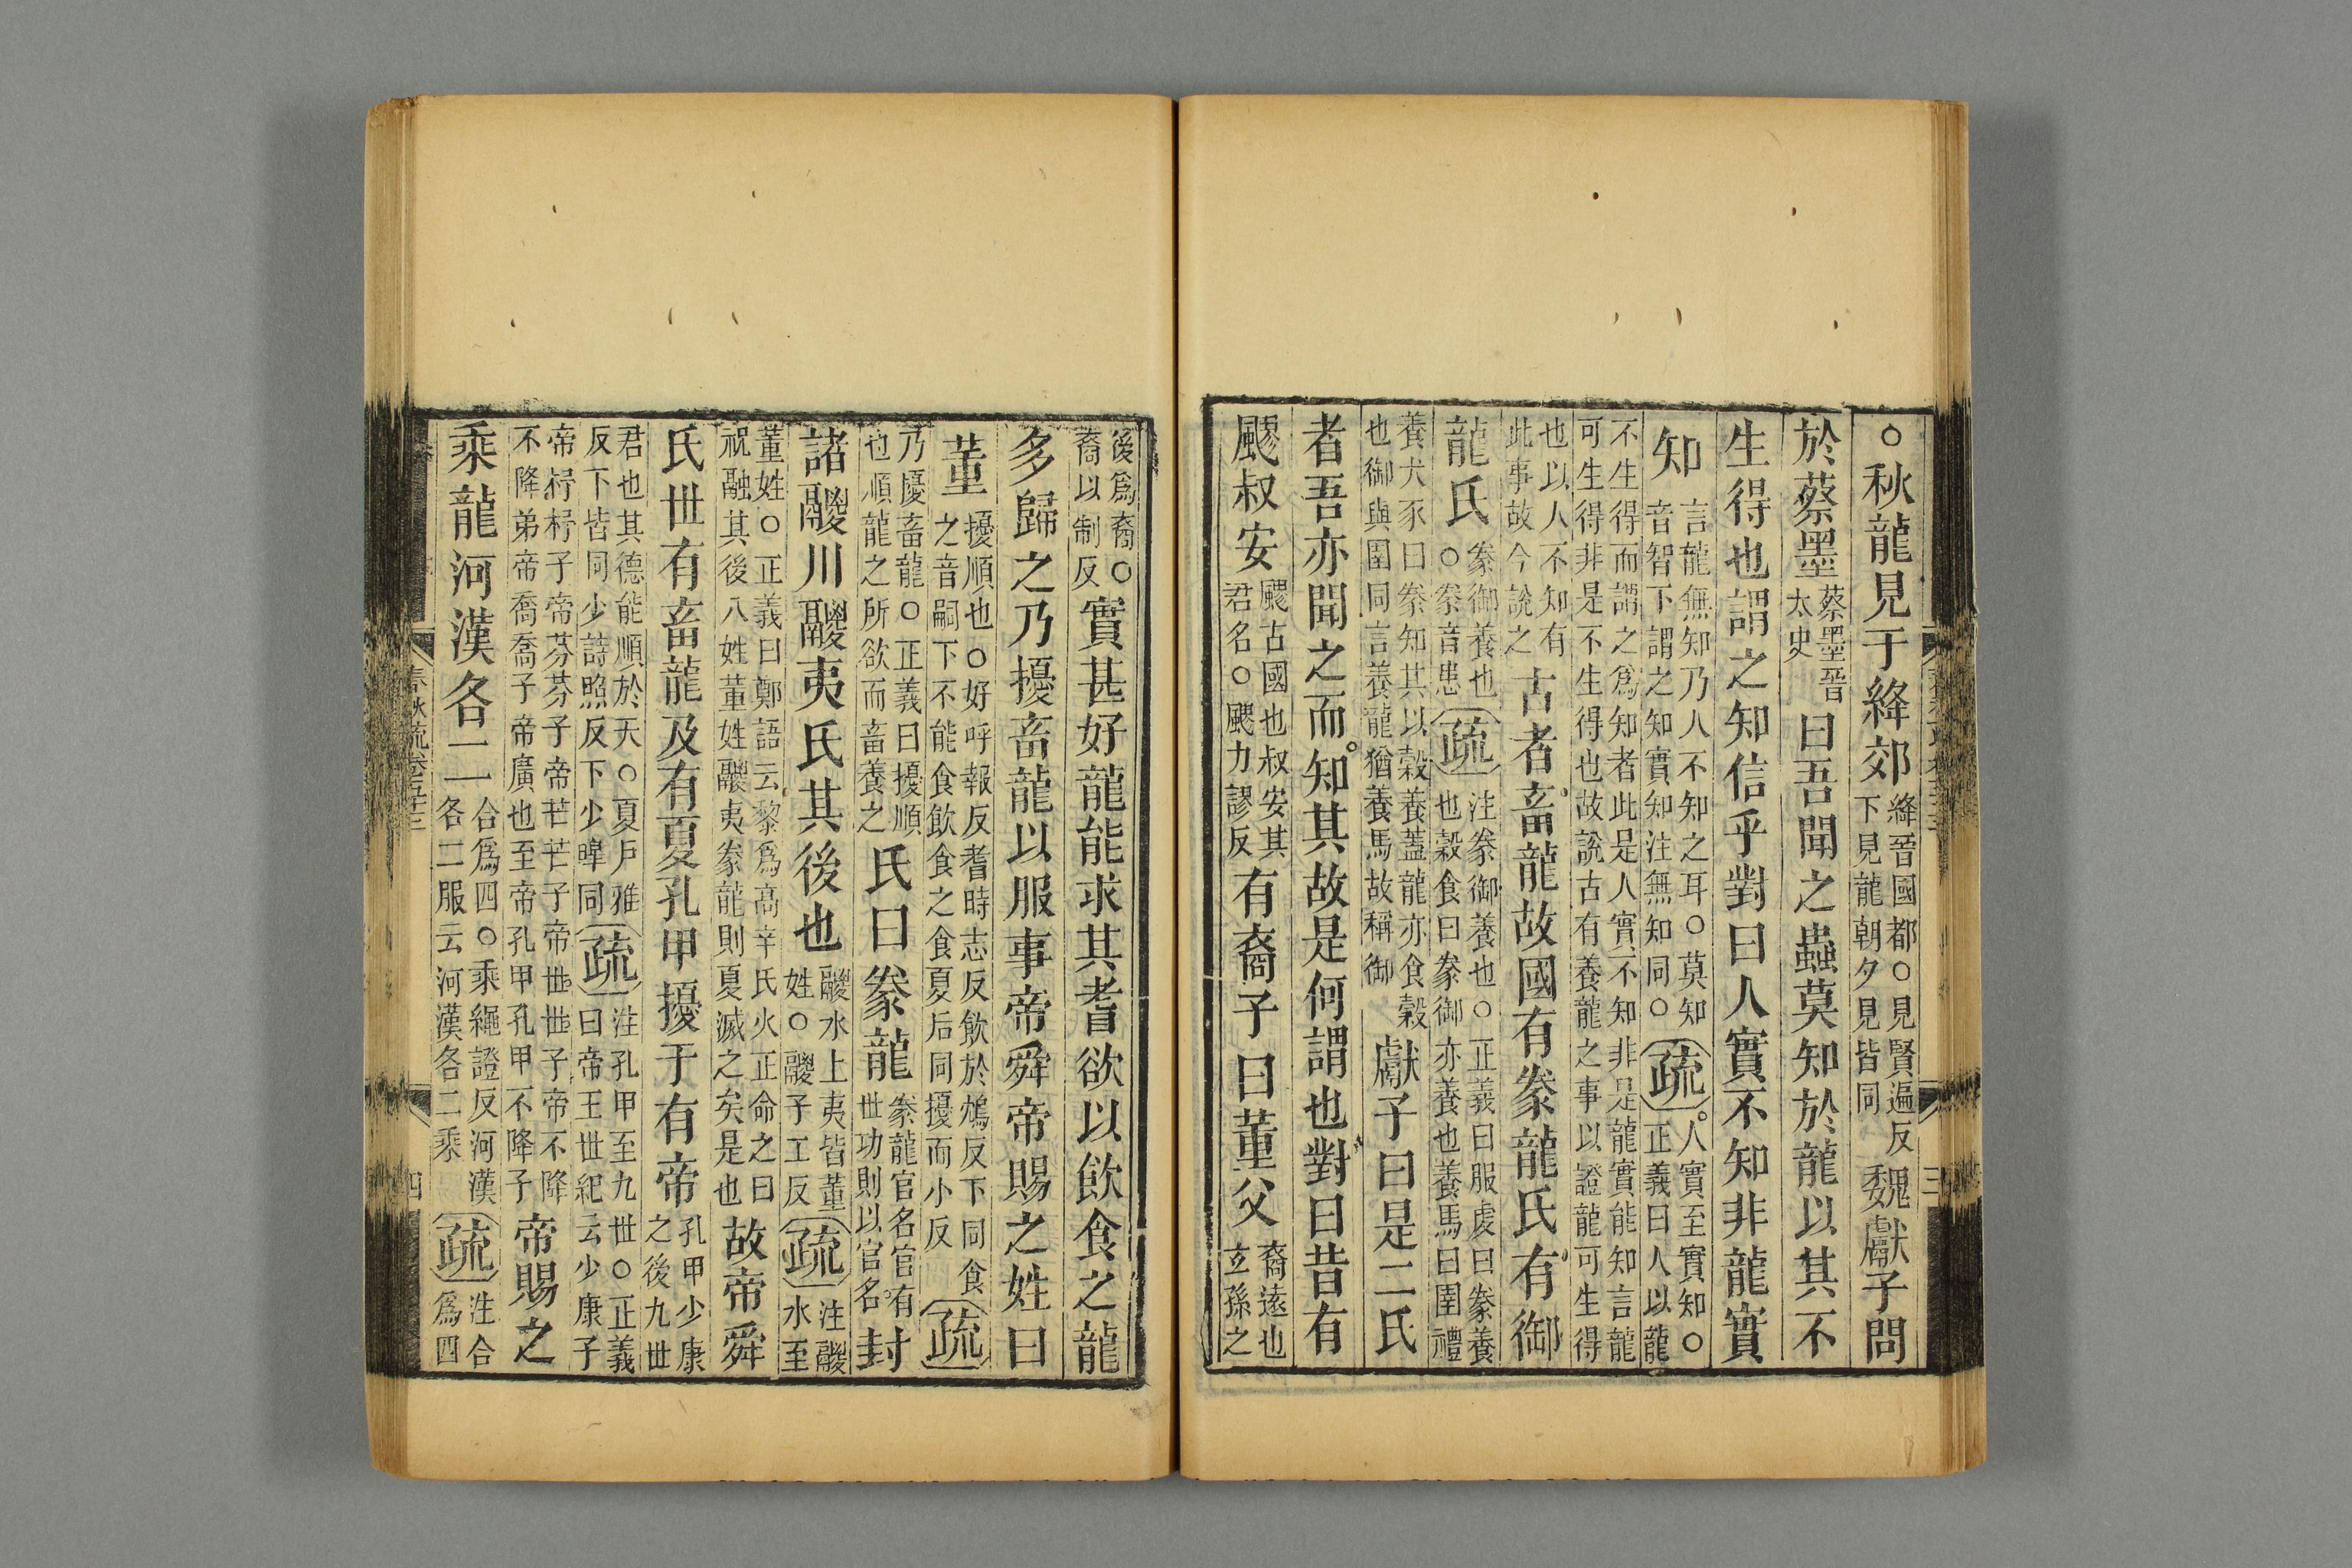 ○秋龍見于絳郊絳晉國都○見賢遍反下見龍朝夕見皆同魏獻子問
於蔡墨蔡墨晉太史曰吾聞之蟲莫知於龍以其不
生得也謂之知信乎對曰人實不知非龍實
知言龍無知乃人不知之耳○莫知音智下謂之知實知注無知同○疏人實至實知○正義曰人以龍
不生得而謂之爲知者此是人實不知非是龍實能知言龍可生得非是不生得也故說古有養龍之事以證龍可生得
也以人不知有此事故今說之古者畜龍故國有豢龍氏有御
龍氏豢御養也○豢音患疏注豢御養也○正義曰服虔曰豢養也穀食曰豢御亦養也養馬曰圉禮
養犬豕曰豢知其以穀養蓋龍亦食穀也御與圉同言養龍猶養馬故稱御獻子曰是二氏
者吾亦聞之而知其故是何謂也對曰昔有
飂叔安飂古國也叔安其君名○飂力謬反有裔子曰董父裔遠也玄孫之
後爲裔○裔以制反實甚好龍能求其耆欲以飲食之龍
多歸之乃擾畜龍以服事帝舜帝賜之姓曰
董擾順也○好呼報反耆時志反飲於鴆反下同食之音嗣下不能食飲食之食夏后同擾而小反疏
乃擾畜龍○正義曰擾順也順龍之所欲而畜養之氏曰豢龍豢龍官名官有世功則以官名封
諸鬷川鬷夷氏其後也鬷水上夷皆董姓○鬷子工反疏注鬷水至
董姓○正義曰鄭語云黎爲高辛氏火正命之曰祝融其後八姓董姓鬷夷豢龍則夏滅之矣是也故帝舜
氏世有畜龍及有夏孔甲擾于有帝孔甲少康之後九世
君也其德能順於天○夏戶雅反下皆同少詩照反下少皞同疏注孔甲至九世○正義曰帝王世紀云少康子
帝杼杼子帝芬芬子帝芒芒子帝世世子帝不降不降弟帝喬喬子帝廣也至帝孔甲孔甲不降子帝賜之
乘龍河漢各二合爲四○乘繩證反河漢各二服云河漢各二乘疏注合爲四
春秋疏卷五十三
四
三